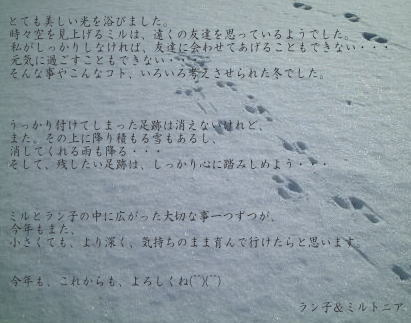 とても美しい光を浴びました。
時々空を見上げるミルは、遠くの友達を思っているようでした。
私がしっかりしなければ、友達に会わせてあげることもできない・・・
元気に過ごすこともできない・・・
そんな事やこんなコト、いろいろ考えさせられた冬でした。
うっかり付けてしまった足跡は消えないけれど、
また。その上に降り積もる雪もあるし、
消してくれる雨も降る・・・
そして、残したい足跡は、しっかり心に踏みしめよう・・・
ミルとラン子の中に広がった大切な事一つずつが、
今年もまた、
小さくても、より深く、気持ちのまま育んで行けたらと思います。
今年も、これからも、よろしくね(^^)(^^)
ラン子&ミルトニア